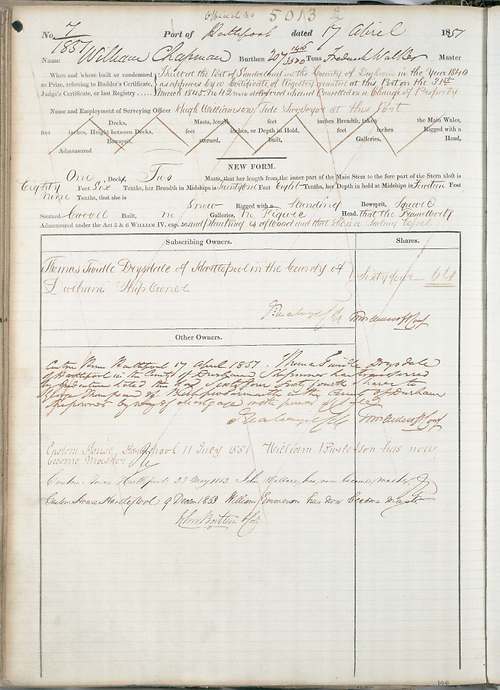 Official No 5013
No. 7 Port of Hartlepool dated 17 April 1857
1857
Name William Chapman Burthen 207 Tons Frederick Walker Master
When and where built or condemned Built at the Port of Sunderland in the County of Durham in the Year 1840
as Prize, referring to Builder's Certificate, as appears by a Certificate of Registry granted at this Port on the 31st
Judge's Certificate, or last Registry March 1845. No 112 now delivered up and Cancelled in a Change of Property
Name and Employment of Surveying Officer Hugh Williamson, Tide Surveyor at this Port
Decks, Masts, length inches Breadth, taken the Main Wales,
feet inches, Height between Decks, feet inches, or Depth in Hold, feet inches, Rigged with a
Bowsprit, sterned, built, Galleries, Head,
Admeasured
NEW FORM.
One Deck, Two Masts, that her length from the inner part of the Main Stem to the fore part of the Stern aloft is
Eighty Feet Six Tenths, her Breadth in Midships is Feet Eight Tenths, her Depth in hold at Midships is Feet
Nine Tenths, that she is Snow Rigged with a Standing Bowsprit, Square
Sterned Carvel Built, no Galleries, no Figure Head, that the Framework
Admeasured under the Act 5 & 6 WILLIAM IV. cap. and Planking is of Wood and that she is a Sailing Vessel
Subscribing Owners. Shares.
Thomas Tindle Drysdale of Hartlepool in the County of
Durham Ship Owner Sixty four 64
Other Owners.
Custom House Hartlepool 17 April 1857. Thomas Tindle Drysdale
of Hartlepool in the County of Durham Shipowner has transferred
by Indenture dated the Sixty four Sixty fourth Shares to
of Bishopwearmouth in the County of Durham
Shipowner by way of Mortgage with power of Sale
Custom House, Hartlepool 11 July 1857 William has now
become Master
Custom House Hartlepool 27 May 1863 John Wallace has now become master
Custom House Hartlepool 9 Decem 1863 William has now become Master